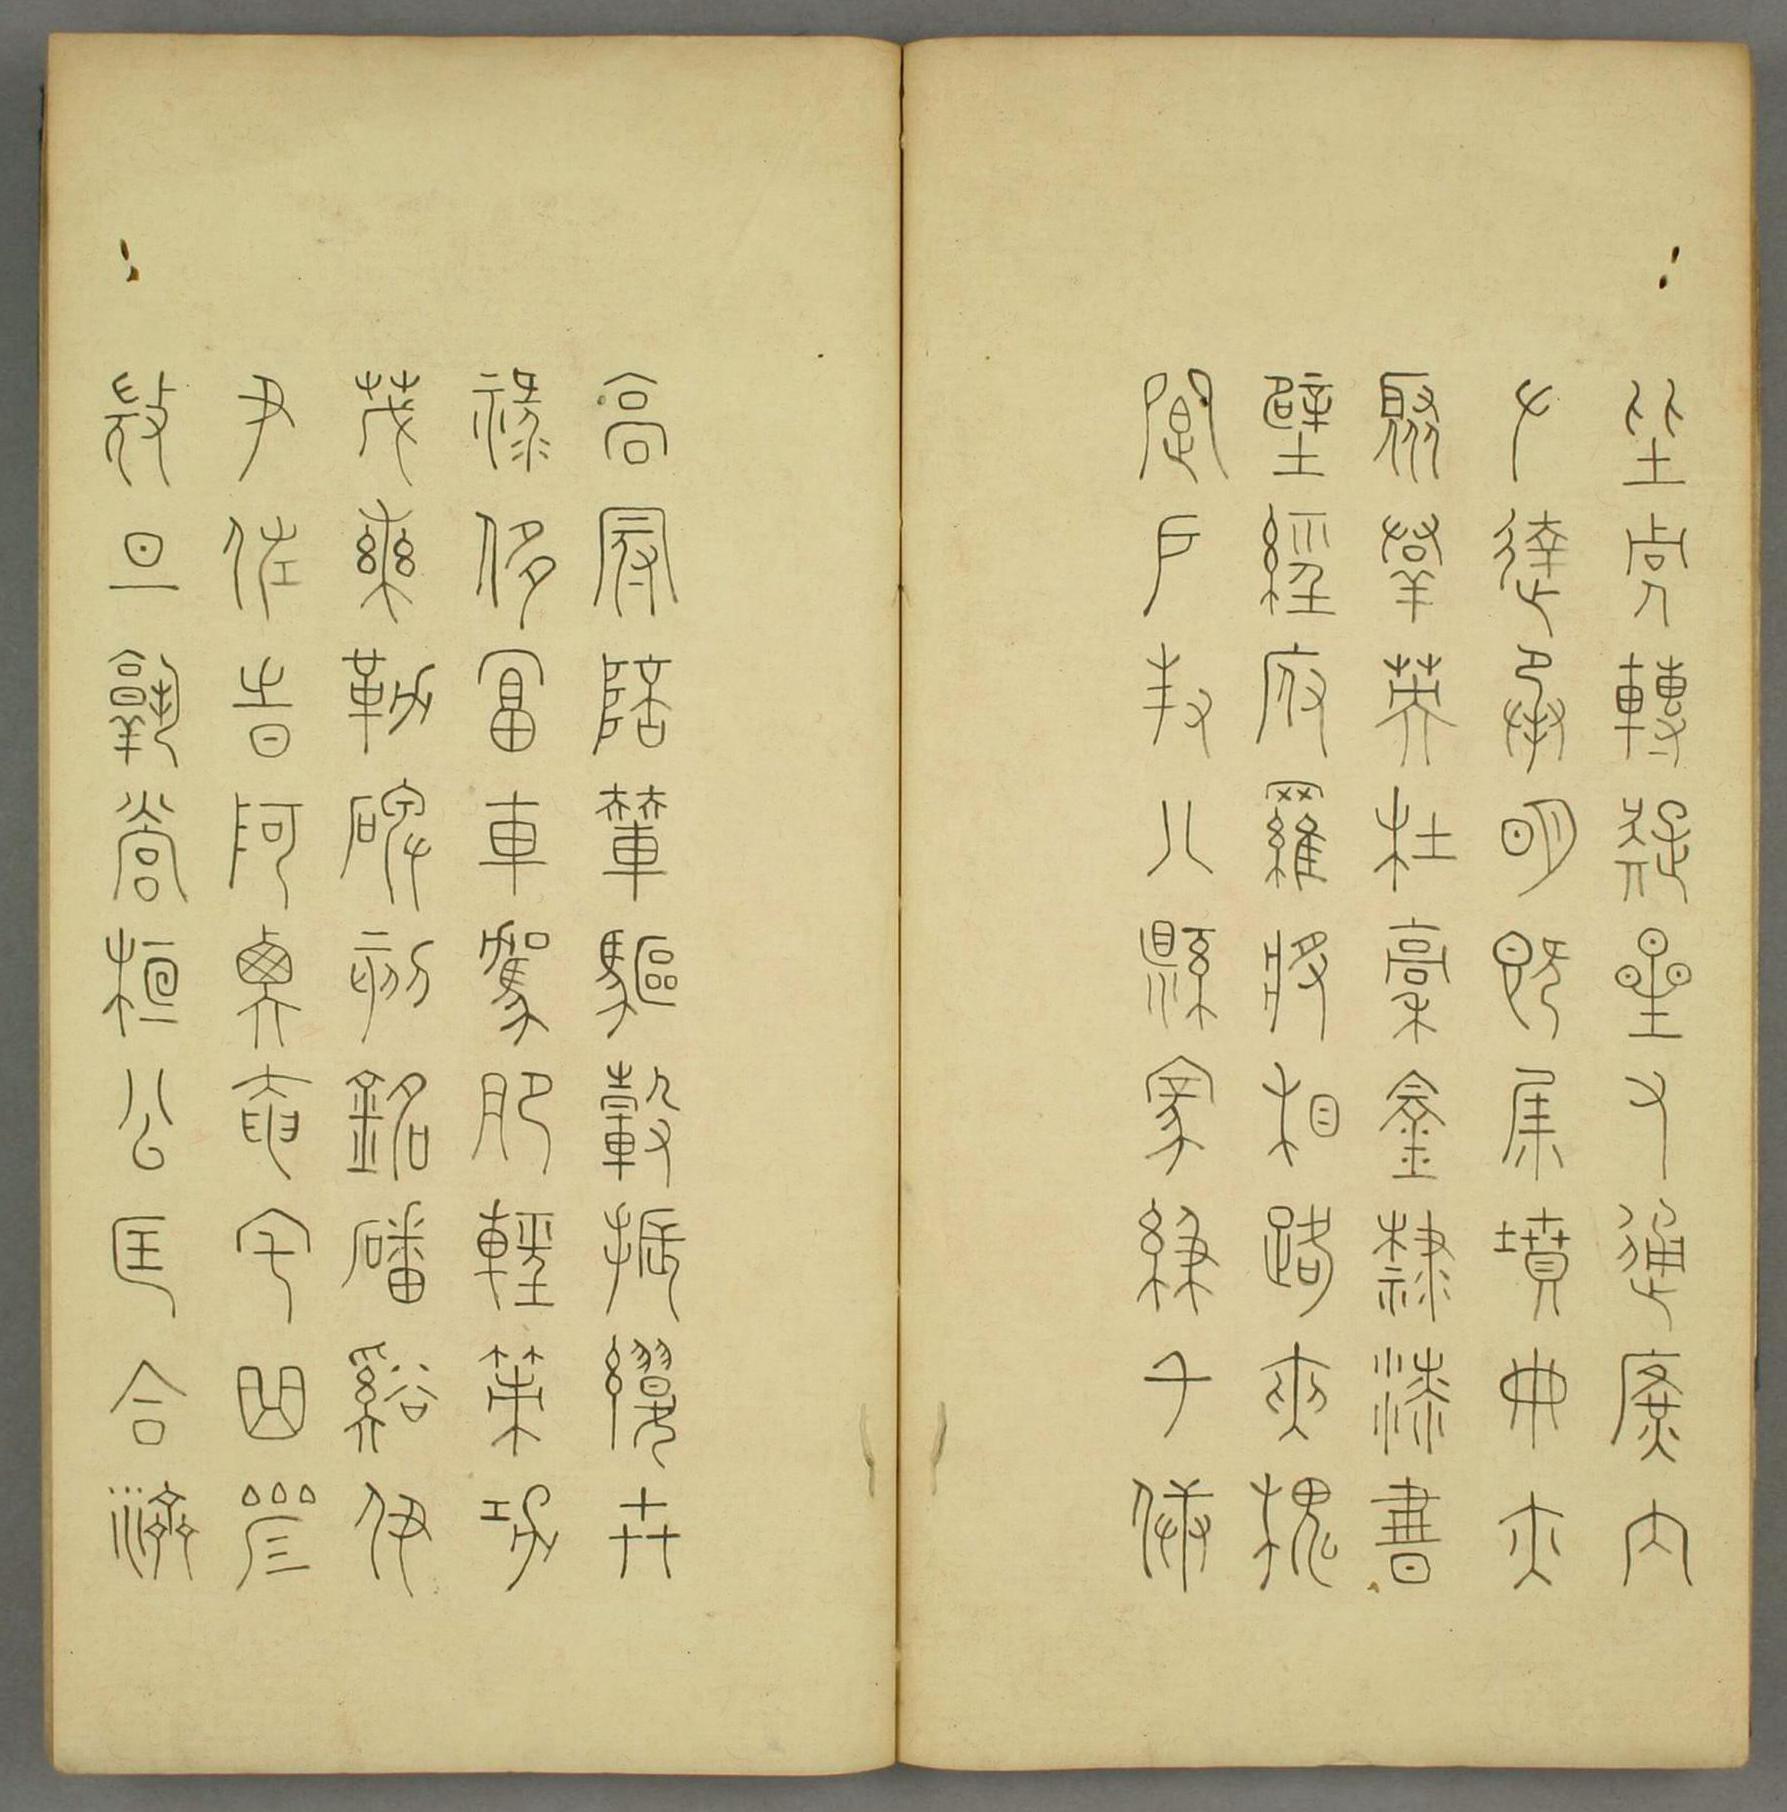 陛弁轉疑星右通廣內
左達承明既集墳典亦
聚羣英杜稾鍾隸漆書
壁經府羅將相路夾槐
卿戶封八縣家給千兵
高冠陪輦驅轂振纓世
祿侈富車駕肥輕策功
茂實勒碑刻銘磻谿伊
尹佐時阿衡奄宅曲阜
微旦孰營桓公匡合濟